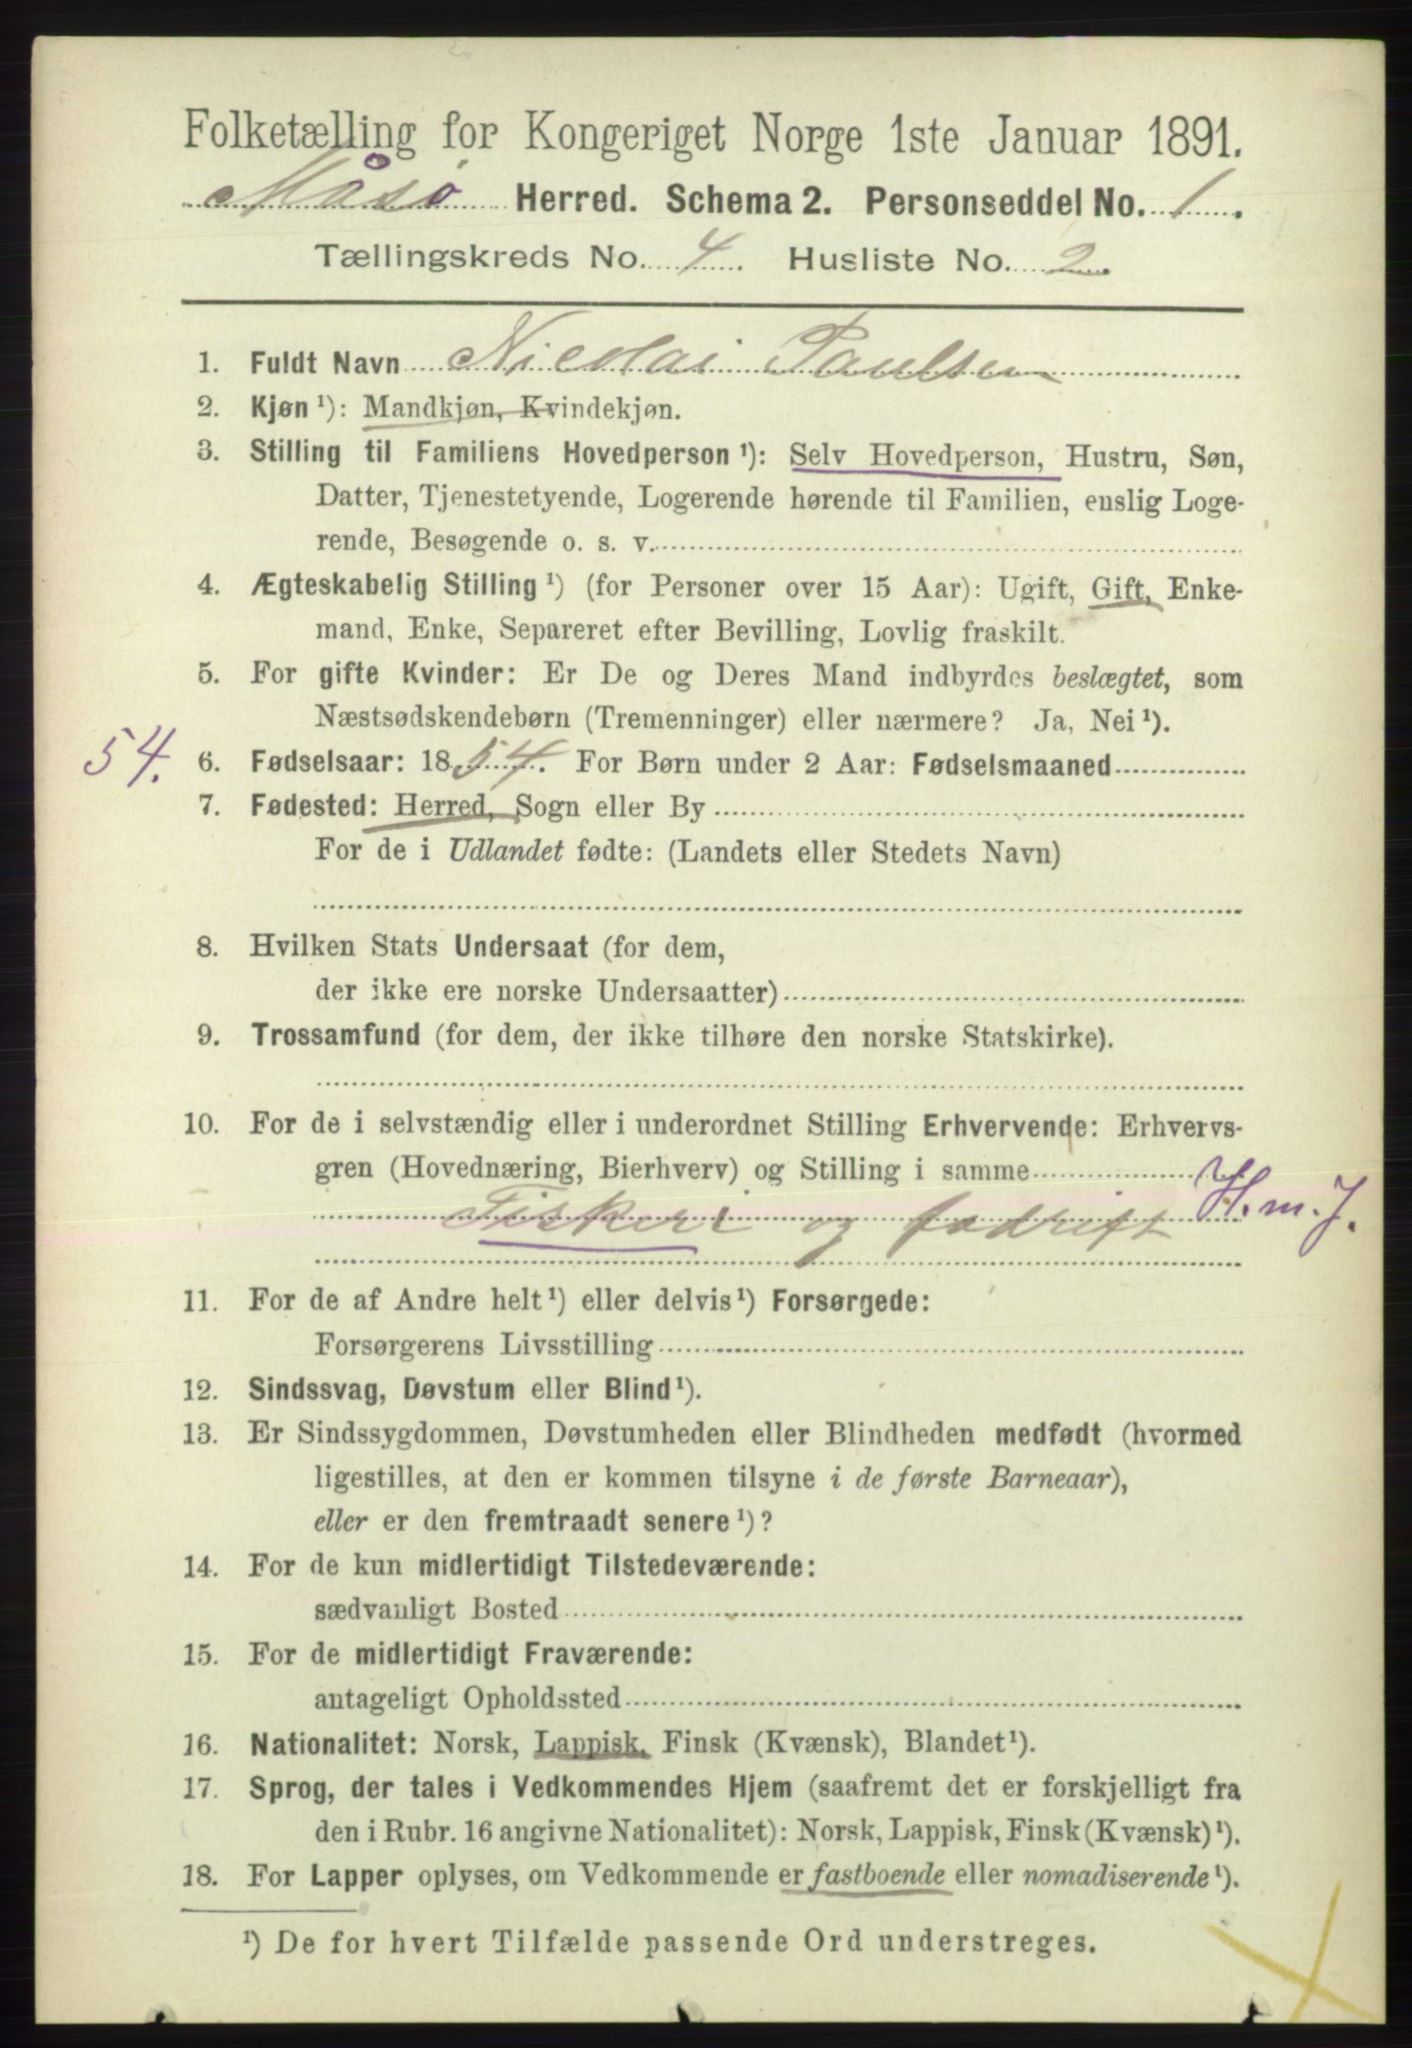 Folketælling for Kongeriget Norge 1ste Januar 1891.
Måsø Herred. Schema 2. Personseddel No. 1.
Tællingskreds No. 4. Husliste No. 2.
1. Fuldt Navn Nicolai Paulsen
2. Kjøn ¹): Mandkjøn, Kvindekjøn.
3. Stilling til Familiens Hovedperson ¹): Selv Hovedperson, Hustru, Søn,
Datter, Tjenestetyende, Logerende hørende til Familien, enslig Loge-
rende, Besøgende o. s. v.
4. Ægteskabelig Stilling ¹) (for Personer over 15 Aar): Ugift, Gift, Enke-
mand, Enke, Separeret efter Bevilling, Lovlig fraskilt.
5. For gifte Kvinder: Er De og Deres Mand indbyrdes beslægtet, som
Næstsødskendebørn (Tremenninger) eller nærmere? Ja, Nei ¹).
54. 6. Fødselsaar: 1854. For Børn under 2 Aar: Fødselsmaaned
7. Fødested: Herred, Sogn eller By
For de i Udlandet fødte: (Landets eller Stedets Navn)
8. Hvilken Stats Undersaat (for dem,
der ikke ere norske Undersaatter)
9. Trossamfund (for dem, der ikke tilhøre den norske Statskirke).
10. For de i selvstændig eller i underordnet Stilling Erhvervende: Erhvervs-
gren (Hovednæring, Bierhverv) og Stilling i samme
Fiskeri og fædrift H. m. J.
11. For de af Andre helt ¹) eller delvis ¹) Forsørgede:
Forsørgerens Livsstilling
12. Sindssvag, Døvstum eller Blind ¹).
13. Er Sindssygdommen, Døvstumheden eller Blindheden medfødt (hvormed
ligestilles, at den er kommen tilsyne i de første Barneaar),
eller er den fremtraadt senere ¹)?
14. For de kun midlertidigt Tilstedeværende:
sædvanligt Bosted
15. For de midlertidigt Fraværende:
antageligt Opholdssted
16. Nationalitet: Norsk, Lappisk, Finsk (Kvænsk), Blandet ¹).
17. Sprog, der tales i Vedkommendes Hjem (saafremt det er forskjelligt fra
den i Rubr. 16 angivne Nationalitet): Norsk, Lappisk, Finsk (Kvænsk) ¹).
18. For Lapper oplyses, om Vedkommende er fastboende eller nomadiserende ¹).
¹) De for hvert Tilfælde passende Ord understreges.